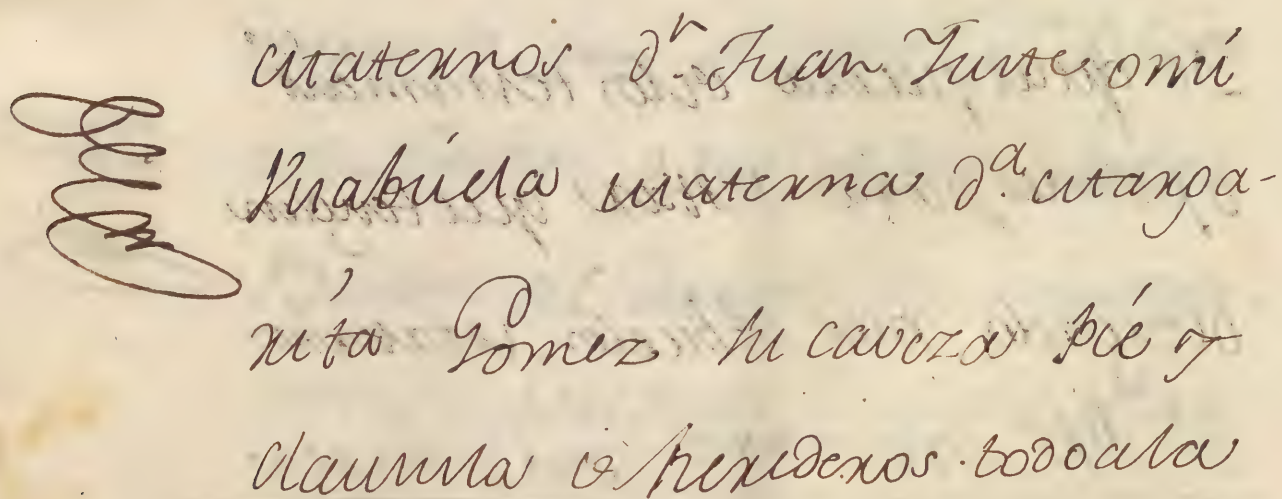 Maternos Dn. Juan Juste omi
Visabuela materna Da. Marga-
rita Gomez su caveza pie y
clausula de herederos todo a la